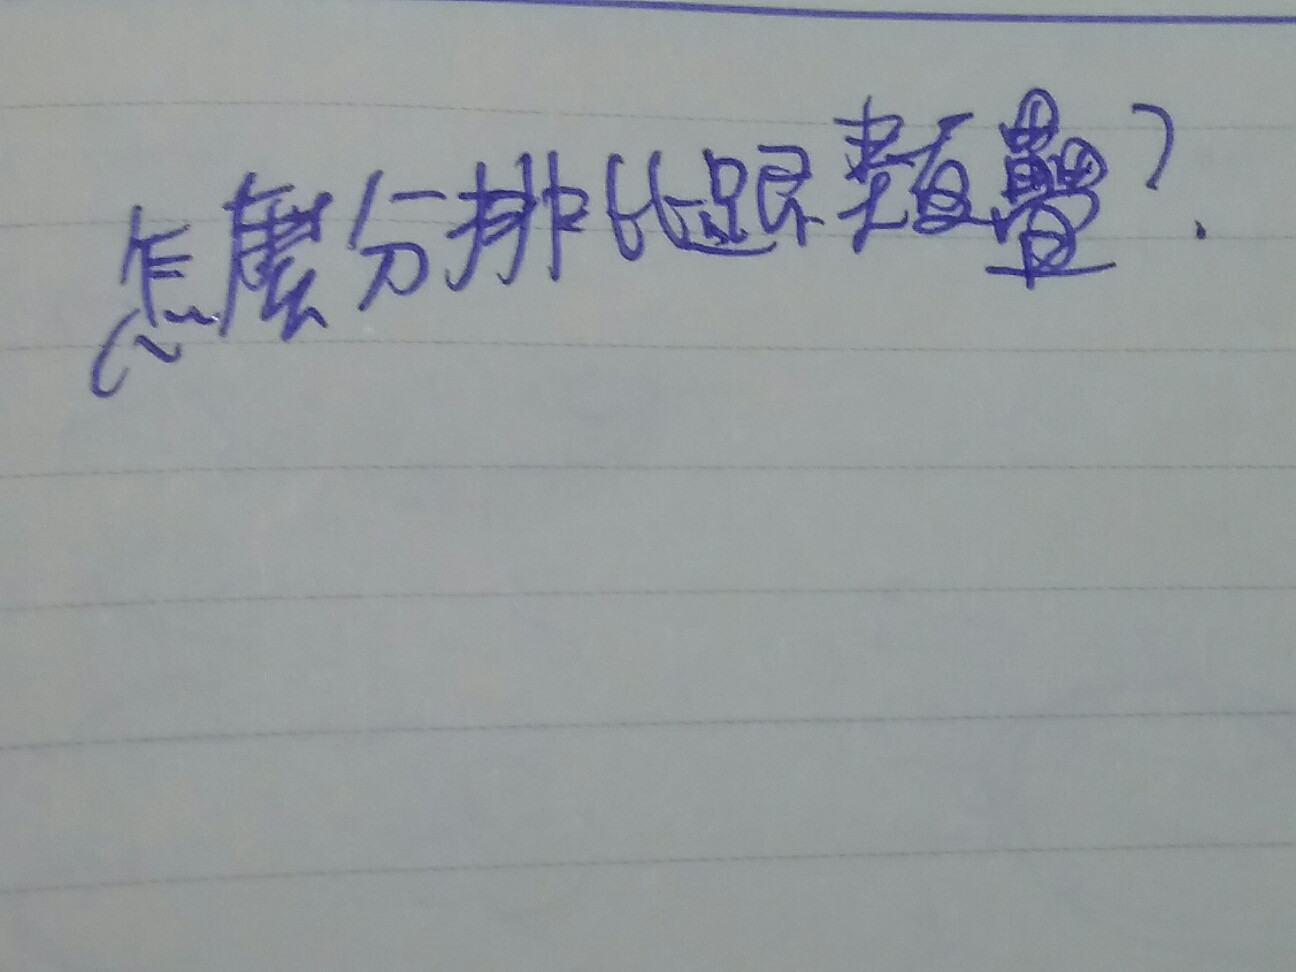 怎麼分排比跟類疊?